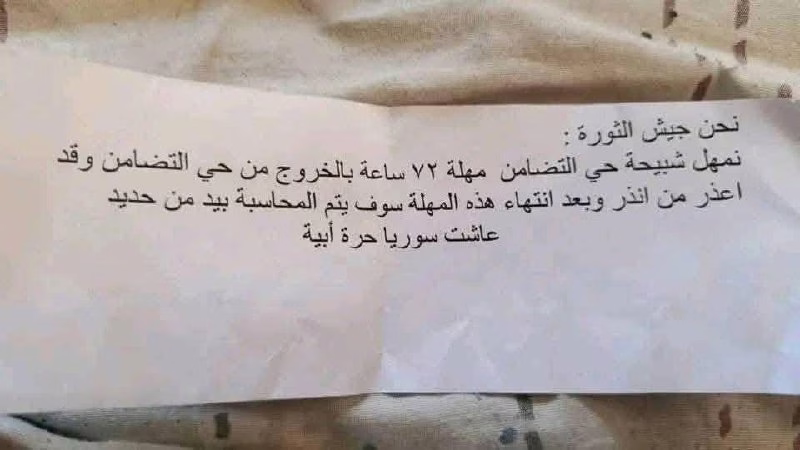 نحن جيش الثورة :
نمهل شبيحة حي التضامن مهلة ٧٢ ساعة بالخروج من حي التضامن وقد
اعذر من انذر وبعد انتهاء هذه المهلة سوف يتم المحاسبة بيد من حديد
عاشت سوريا حرة أبية